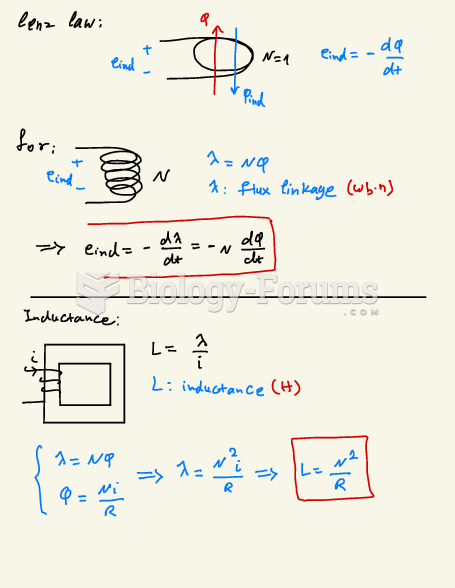 lenz law:
φ
+
eind
-
N=1
φind
eind = - dφ/dt
for:
+
eind
-
N
λ = Nφ
λ: flux linkage (wb.n)
⟹ eind = - dλ/dt = -N dφ/dt
Biology-Forums
.COM
Inductance:
i
L = λ/i
L: inductance (H)
{ λ = Nφ
φ = Ni/R
⟹ λ = N²i/R ⟹ L = N²/R